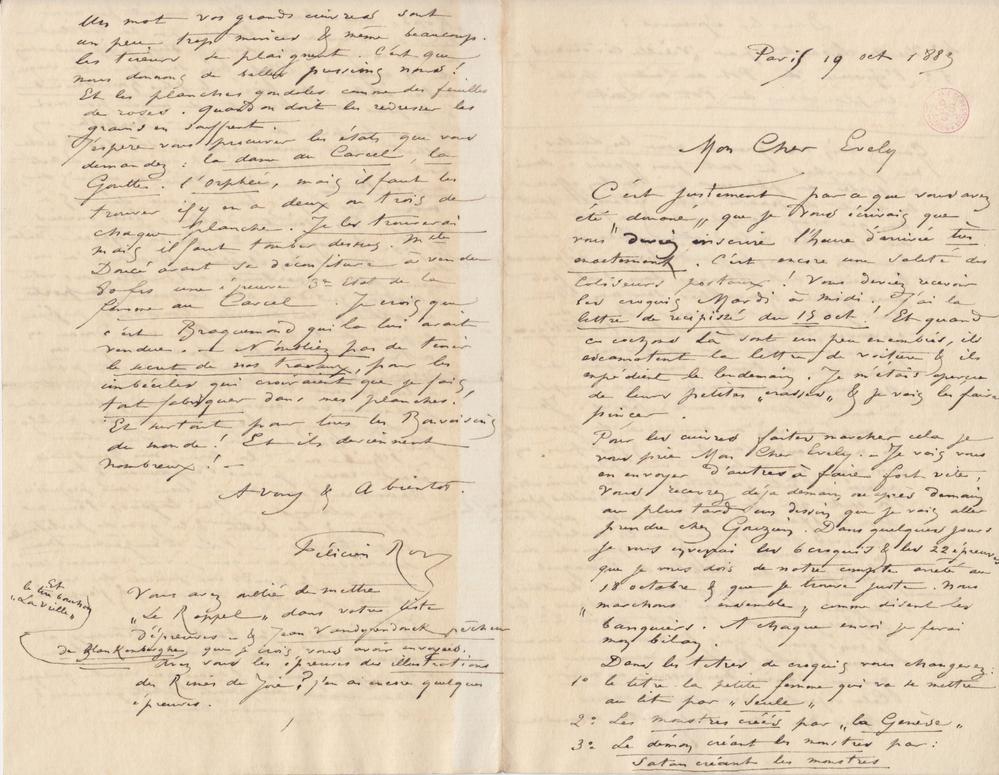 Paris 19 oct 1883
Mon Cher Evely
C'est justement parce que vous avez
été "douane" que je vous écrivais que
vous deviez inscrire l'heure d'arrivée très
exactement. C'est encore une saleté des
Coliseurs postaux! Vous deviez recevoir
les croquis Mardi à midi. J'ai la
lettre de récipissé du 15 oct! Et quand
ces cochons là sont un peu enembiés, ils
escamotent la lettre de voiture & ils
expédient le lendemain. Je m'étais aperçu
de leurs petites "crasses" & je vais les faire
pincer.
Pour les cuivres faites marcher cela je
vous prie Mon Cher Evely. - Je vais vous
en envoyer d'autres à faire fort vite,
Vous recevrez déjà demain ou après demain
au plus tard un dessin que je vais aller
prendre chez Gouzien. Dans quelques jours
je vous enverrai les 6 croquis & les 22 épreuves
que je vous dois de notre compte arrêté au
18 octobre & que je trouve juste. Nous
"marchons ensemble" comme disent les
banquiers. A chaque envoi je ferai
mon bilan.
Dans les titres de croquis vous changerez:
1° le titre la petite femme qui va se mettre
au lit par "Seule"
2° Les monstres créés par "la Genèse"
3° Le démon créant les monstres par:
Satan créant les monstres
Un mot vos grands cuivres sont
un peu trop minces & meme beaucoup.
les tireurs se plaignent. C'est que
nous donnons de belles pressions nous!
Et les planches gondoles comme des feuilles
de roses. Quand on doit les redresser les
grains en souffrent.
J'espère vous procurer les états que vous
demandez: la dame au Carcel, la
Goutte. l'Orphée, mais il faut les
trouver il y en a deux ou trois de
chaque planche. Je les trouverai
mais il faut tomber dessus. Melle
Doucé avant sa déconfiture à vendu
80 frs une épreuve 3e état de la
femme au Carcel. Je crois que
c'est Bracquemond qui la lui avait
vendue. - N'oubliez pas de tenir
le secret de nos travaux, pour les
imbéciles qui croiraient que je fais
tout fabriquer dans mes planches!
Et surtout pour tous les
du monde! Et ils deviennent
nombreux! -
A vous & A bientot.
Félicien Rops
Vous avez oublié de mettre
"Le Rappel" dans votre liste
d'épreuves - & Jean pêcheur
de Blankenberghe que je crois vous avoir envoyés.
Et
le
"La vieille"
Avez vous les épreuves des illustrations
des Rimes de Joie? j'en ai encore quelques
épreuves.